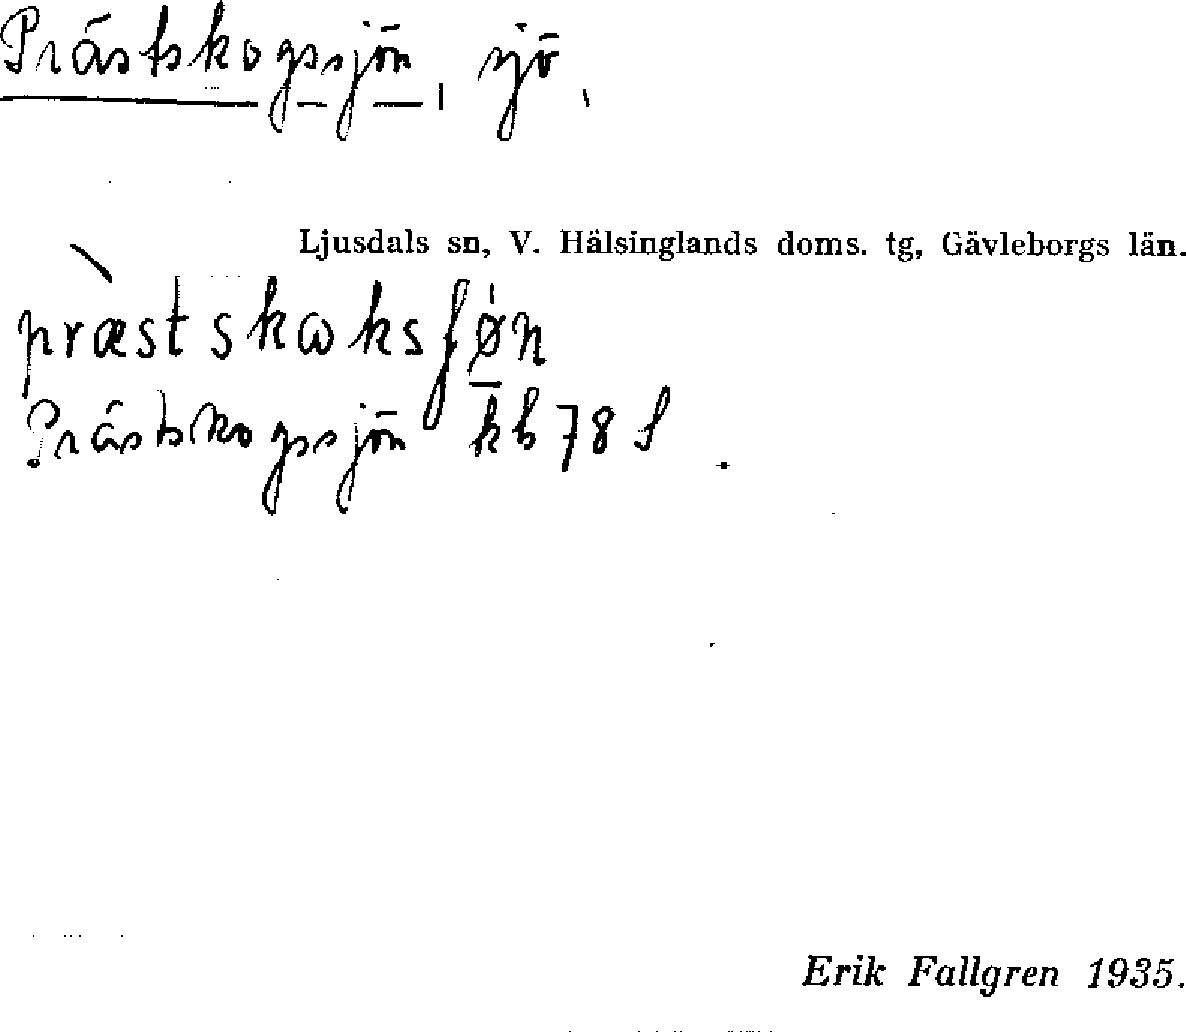 Prästskogssjön, sjö.
Ljusdals sn, V. Hälsinglands doms. tg, Gävleborgs län.
præstskɷksʃøn
Prästskogssjön kb 78 S
Erik Fallgren 1935.